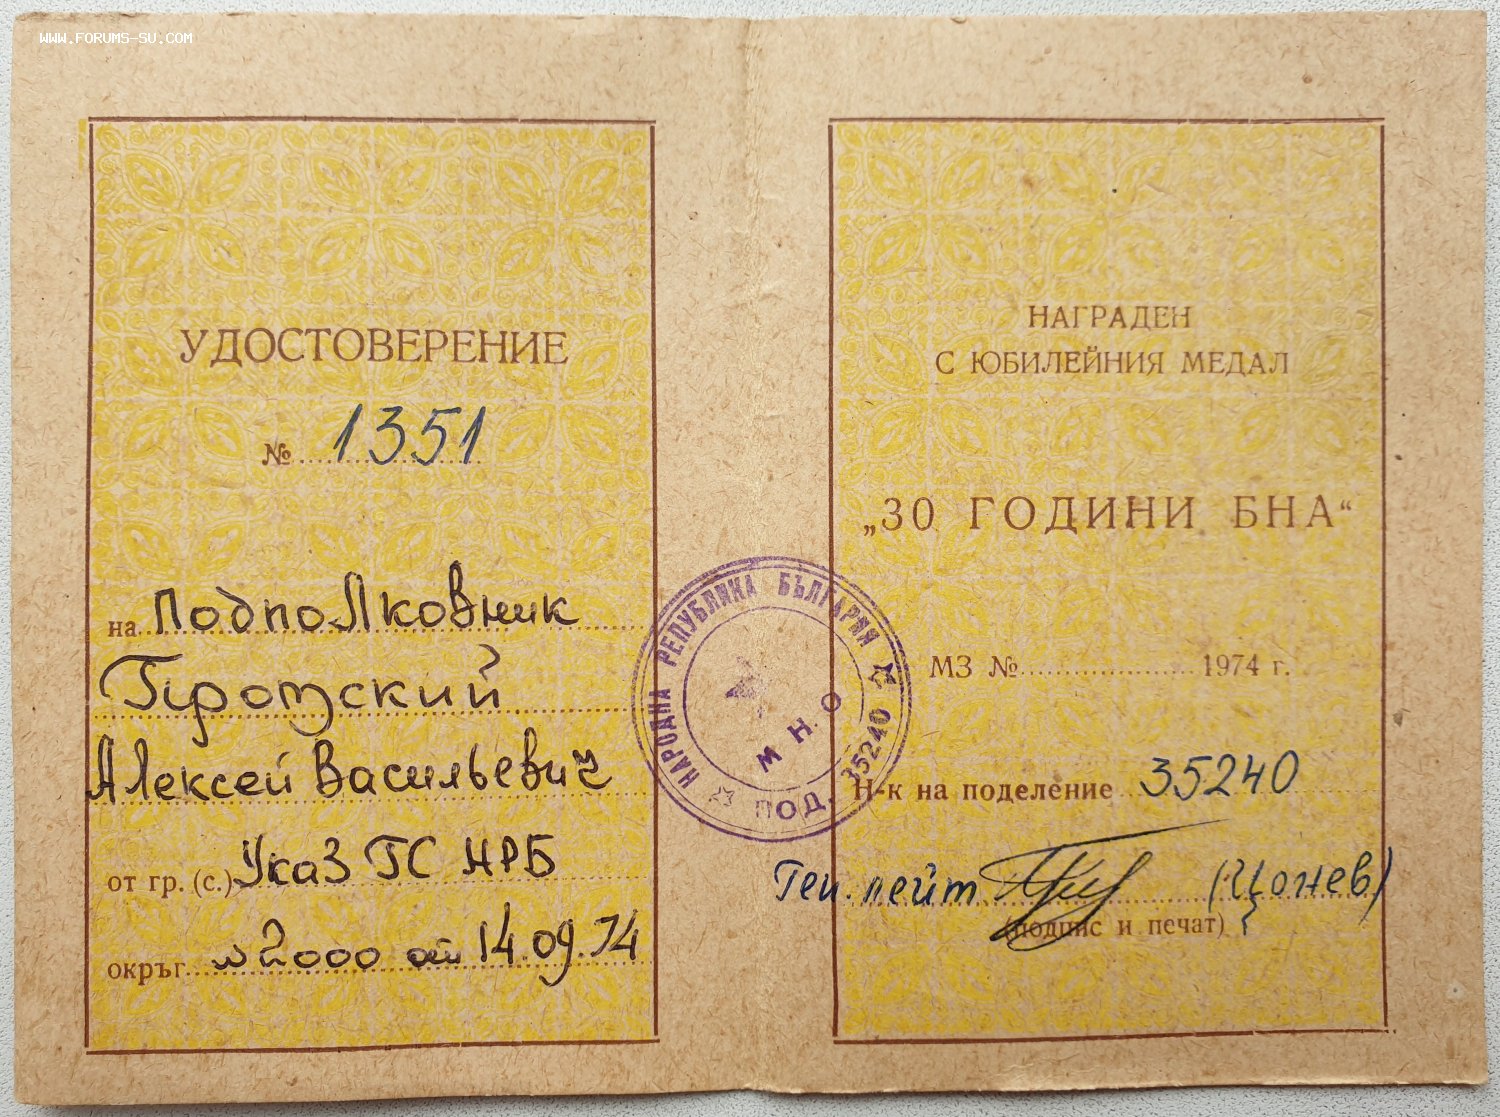 WWW.FORUMS-SU.COM
УДОСТОВЕРЕНИЕ
№ 1351
на Подполковник
Протский
Алексей Васильевич
от гр. (с.) Указ ГС НРБ
окръг № 2000 от 14.09.74
НАГРАДЕН
С ЮБИЛЕЙНИЯ МЕДАЛ
„30 ГОДИНИ БНА“
МЗ № 1974 г.
Н-к на поделение 35240
Ген. лейт (Цонев)
(подпис и печат)
НАРОДНА РЕПУБЛИКА БЪЛГАРИЯ
М Н. О
ПОД. 35240